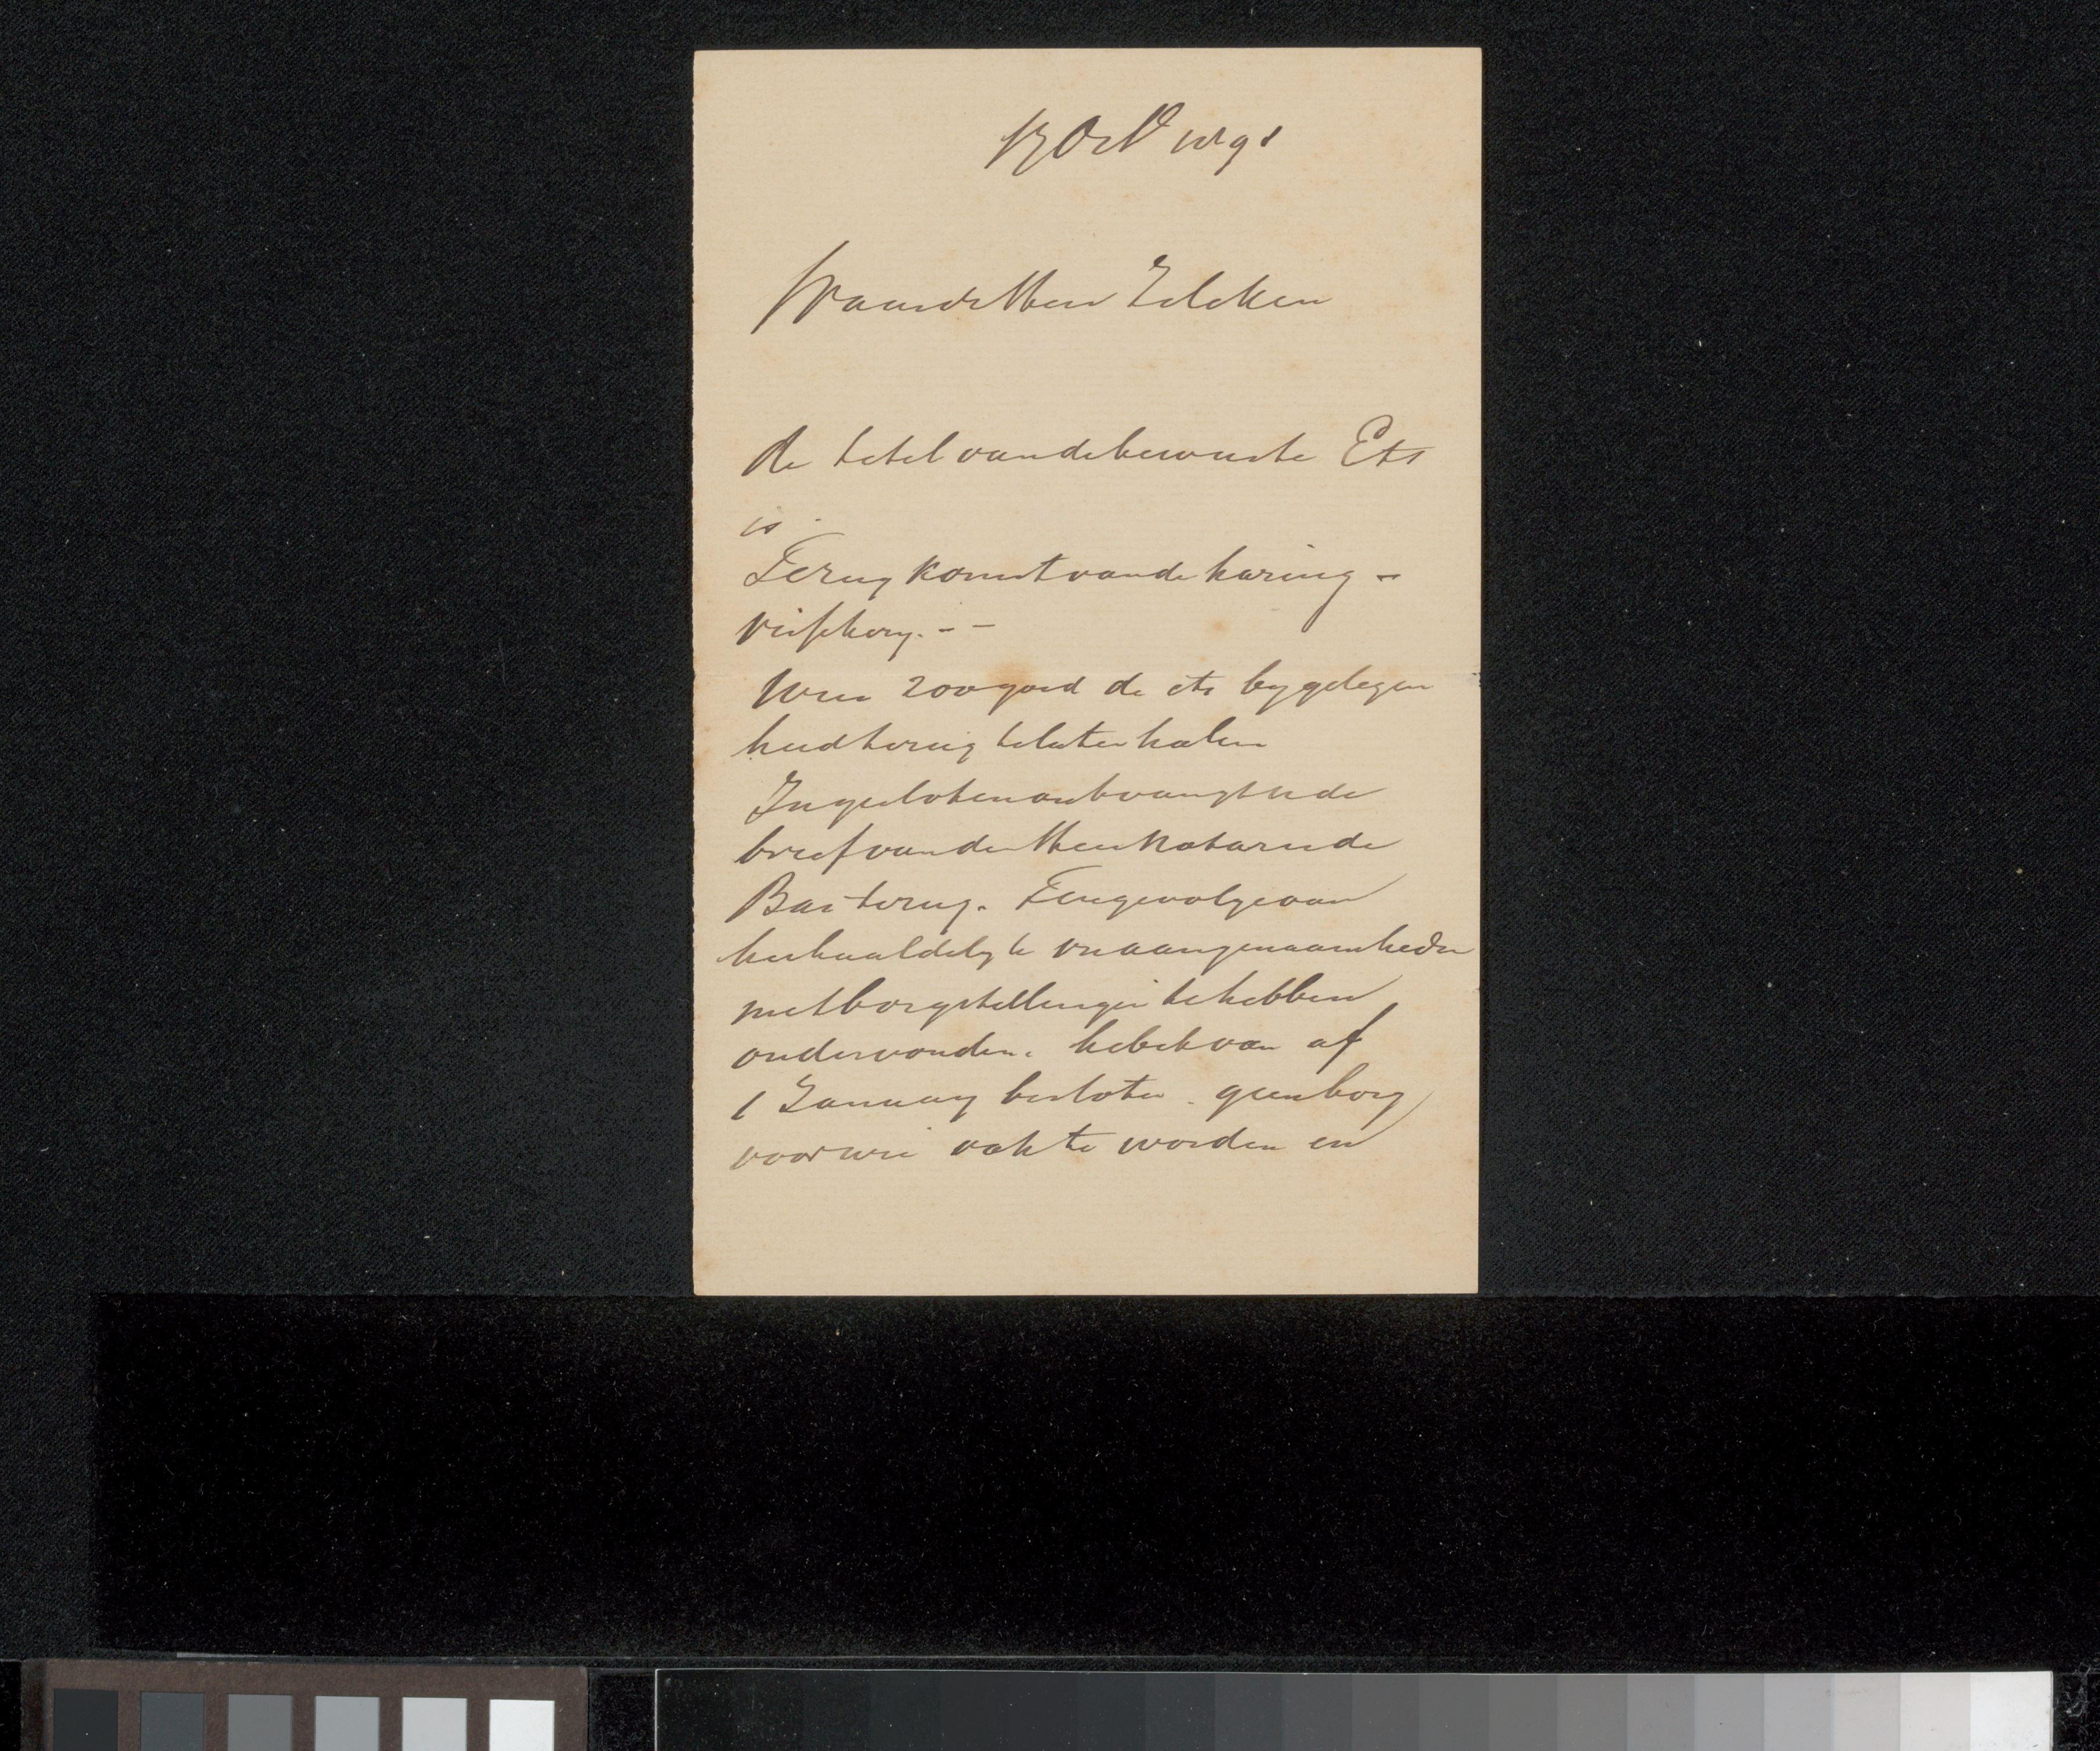 Oct
Waarde Heer Zilcken
de titel van de bewuste Ets
is
Terugkomst van de haring -
visscherij. - -
Wees zoo goed de ets by gelegen
heid terug te laten halen
Ingesloten ontvangt U de
brief van den Heer Notaris de
Bas terug. Tengevolge van
herhaaldelyk onaangenaamheden
met borgstellingen te hebben
ondervonden. heb ik van af
1 January besloten. geen borg
voor wie ook te worden en